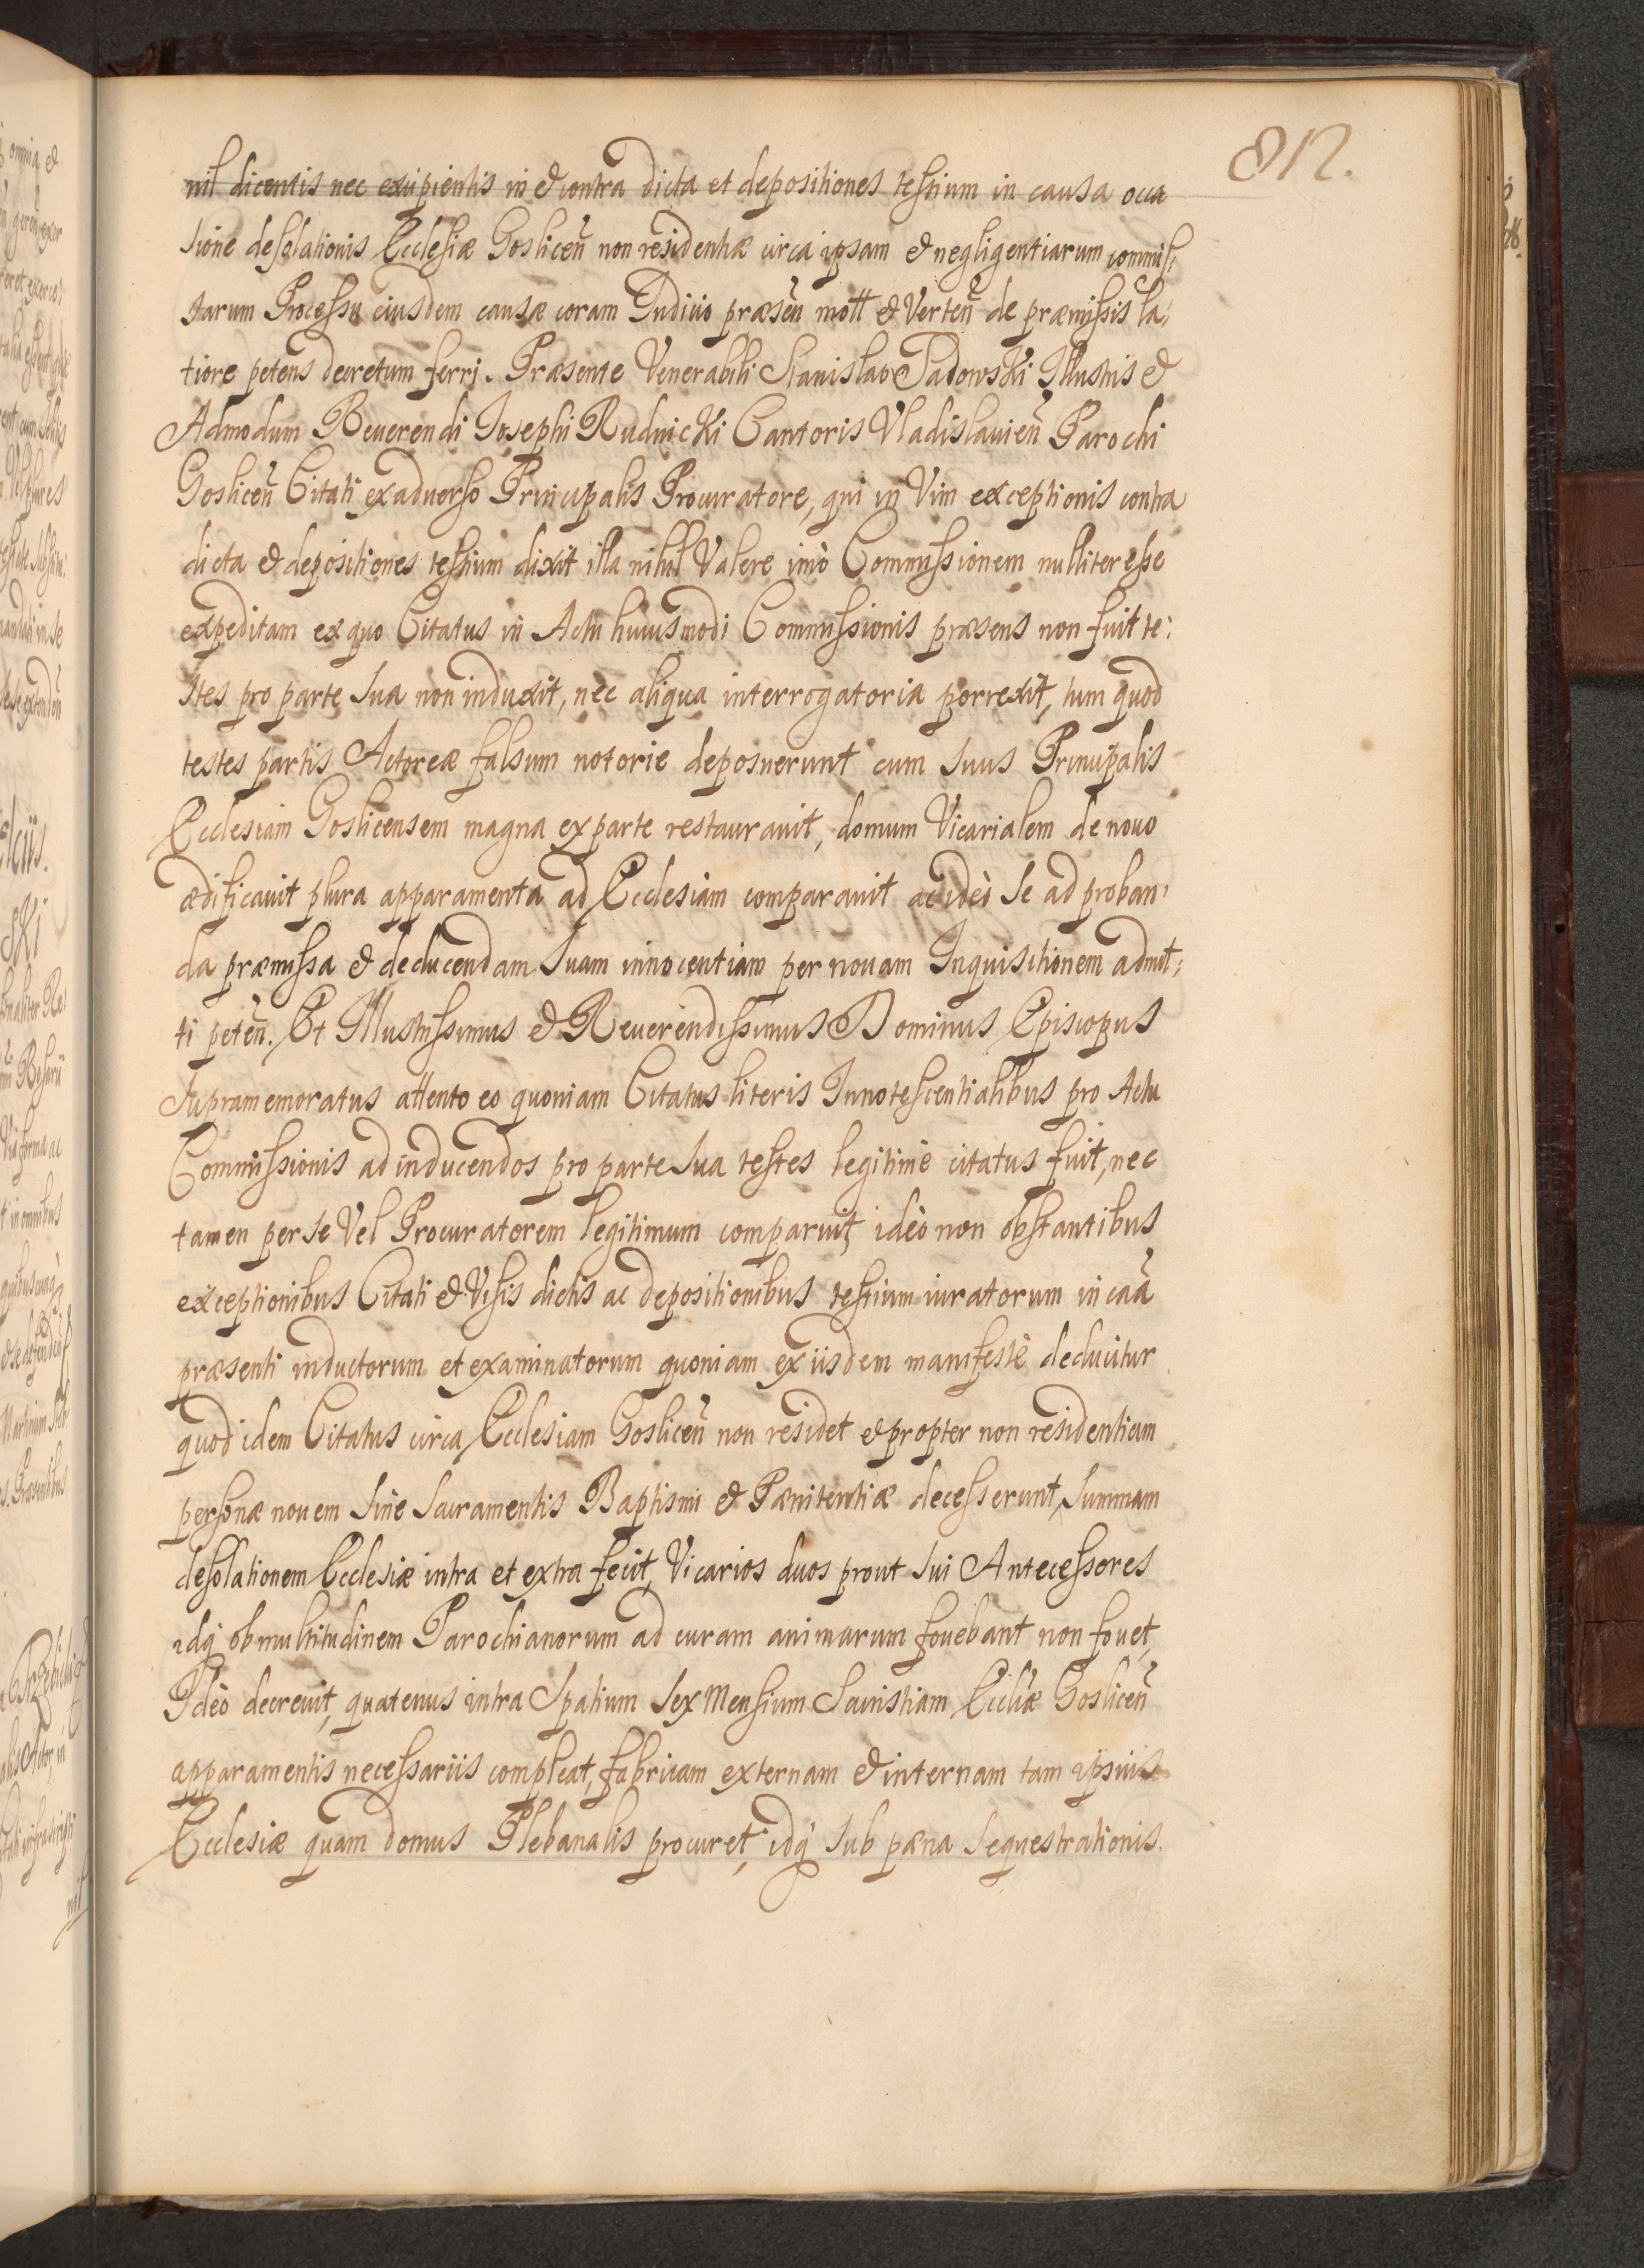 812.
nil dicentis nec excipientis in & contra dicta et depositiones testium in causa occa
sione desolationis Ecclesiæ Goslicen̄ non residentiæ circa ipsam & negligentiarum commis,
tarum Processu eiusdem causæ coram Iudicio præsen̄ mott & Verten̄ de præmissis la,
tiore petens decretum ferri. Præsente Venerabili Stanislao Sadowski Illustris &
Admodum Reuerendi Iosephi Rudnicki Cantoris Vladislauien̄ Parochi
Goslicen̄ Citati ex aduerso Principalis Procuratore, qui in Vim exceptionis contra
dicta & depositiones testium dixit illa nihil Valere imò Commissionem nulliter esse
expeditam ex quo Citatus in Actu huiusmodi Commissionis præsens non fuit te:
stes pro parte sua non induxit, nec aliqua interrogatoria porrexit, tum quod
testes partis Actoreæ falsum notorie deposuerunt cum suus Principalis
Ecclesiam Goslicensem magna ex parte restaurauit, domum Vicarialem de nouo
ædificauit plura apparamenta ad Ecclesiam comparauit ac ideò se ad proban,
da præmissa & deducendam suam innocentiam per nouam Inquisitionem admit,
ti peten̄. Et Illustrissimus & Reuerendissimus Dominus Episcopus
supramemoratus attento eo quoniam Citatus literis Innotescentialibus pro Actu
Commissionis ad inducendos pro parte sua testes legitimè citatus fuit, nec
tamen per se Vel Procuratorem legitimum comparuit, ideò non obstantibus
exceptionibus Citati & Visis dictis ac depositionibus testium iuratorum in caã
præsenti inductorum et examinatorum quoniam ex iisdem manifestè deducitur
quod idem Citatus circa Ecclesiam Goslicen̄ non residet & propter non residentiam
personæ nouem sine Sacramentis Baptismi & Pænitentiæ decesserunt, summam
desolationem Ecclesiæ intra et extra fecit, Vicarios duos prout sui Antecessores
idq́ ob multitudinem Parochianorum ad curam animarum fouebant non fouet,
Ideò decreuit, quatenus intra Spatium sex Mensium Sacristiam Eccliæ Goslicen̄
apparamentis necessariis compleat, fabricam externam & internam tam ipsius
Ecclesiæ quam domus Plebanalis procuret, idq́ sub pæna sequestrationis.